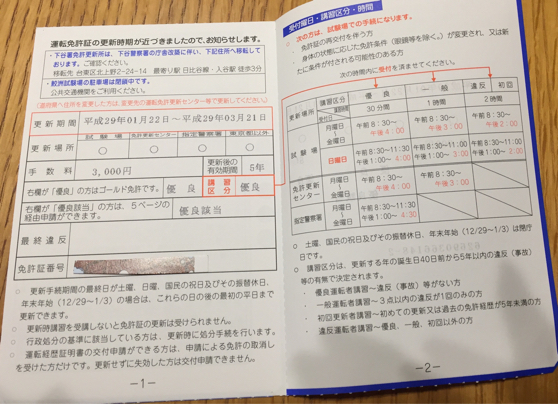 運転免許証の更新時期が近づきましたので、お知らせします。
・下谷署免許更新所は、下谷警察署の庁舎改築に伴い、下記住所へ移転して
おります。ご確認ください。
移転先 台東区北上野2-24-14 最寄り駅 日比谷線・入谷駅 徒歩3分
・鮫洲試験場の駐車場は閉鎖中です。
公共交通機関をご利用ください。
更新期間 平成29年01月22日～平成29年03月21日
更新場所 試験場 免許更新センター 指定警察署 東京都以外
○ ○ ○ ○
手数料 3,000円 更新後の有効期間 5年
右欄が「優良」の方はゴールド免許です。 優良 講習区分 優良
右欄が「優良該当」の方は、5ページの
経由申請ができます。 優良該当
最終違反
免許証番号
○ 更新手続期間の最終日が土曜、日曜、国民の祝日及びその振替休日、
年末年始(12/29～1/3)の場合は、これらの日の後の最初の平日まで
更新できます。
○ 更新時講習を受講しないと免許証の更新は受けられません。
○ 行政処分の基準に該当している方は、更新時に処分手続を行います。
○ 運転経歴証明書の交付申請ができる方は、申請による免許の取消し
を受けた方だけです。更新せずに失効した方は交付申請できません。
-1-
受付曜日・講習区分・時間
次の方は、試験場での手続になります。
・免許証の再交付を伴う方
・身体の状態に応じた免許条件(眼鏡等を除く。)が変更され、又は新
たに条件が付される可能性のある方
次の時間内に受付を済ませてください。
更新場所 講習区分 優良 一般 違反 初回
受付日 30分間 1時間 2時間
試験場 月曜日～金曜日 午前8:30～午後4:00 午前8:30～午後3:00 午前8:30～午後2:00
日曜日 午前8:30～11:30 午後1:00～4:00 午前8:30～11:30 午後1:00～3:00 午前8:30～11:30 午後1:00～2:00
免許更新センター 月曜日～金曜日 午前8:30～午後4:00 午前8:30～午後3:00
指定警察署 月曜日～金曜日 午前8:30～11:30 午後1:00～4:30
○ 土曜、国民の祝日及びその振替休日、年末年始(12/29～1/3)は閉庁
日です。
○ 講習区分は、更新する年の誕生日40日前から5年以内の違反(事故)
等の有無で決定されます。
・優良運転者講習～違反(事故)等がない方
・一般運転者講習～3点以内の違反が1回のみの方
・初回更新者講習～初めての更新又は過去の免許経歴が5年未満の方
・違反運転者講習～優良、一般、初回以外の方
-2-